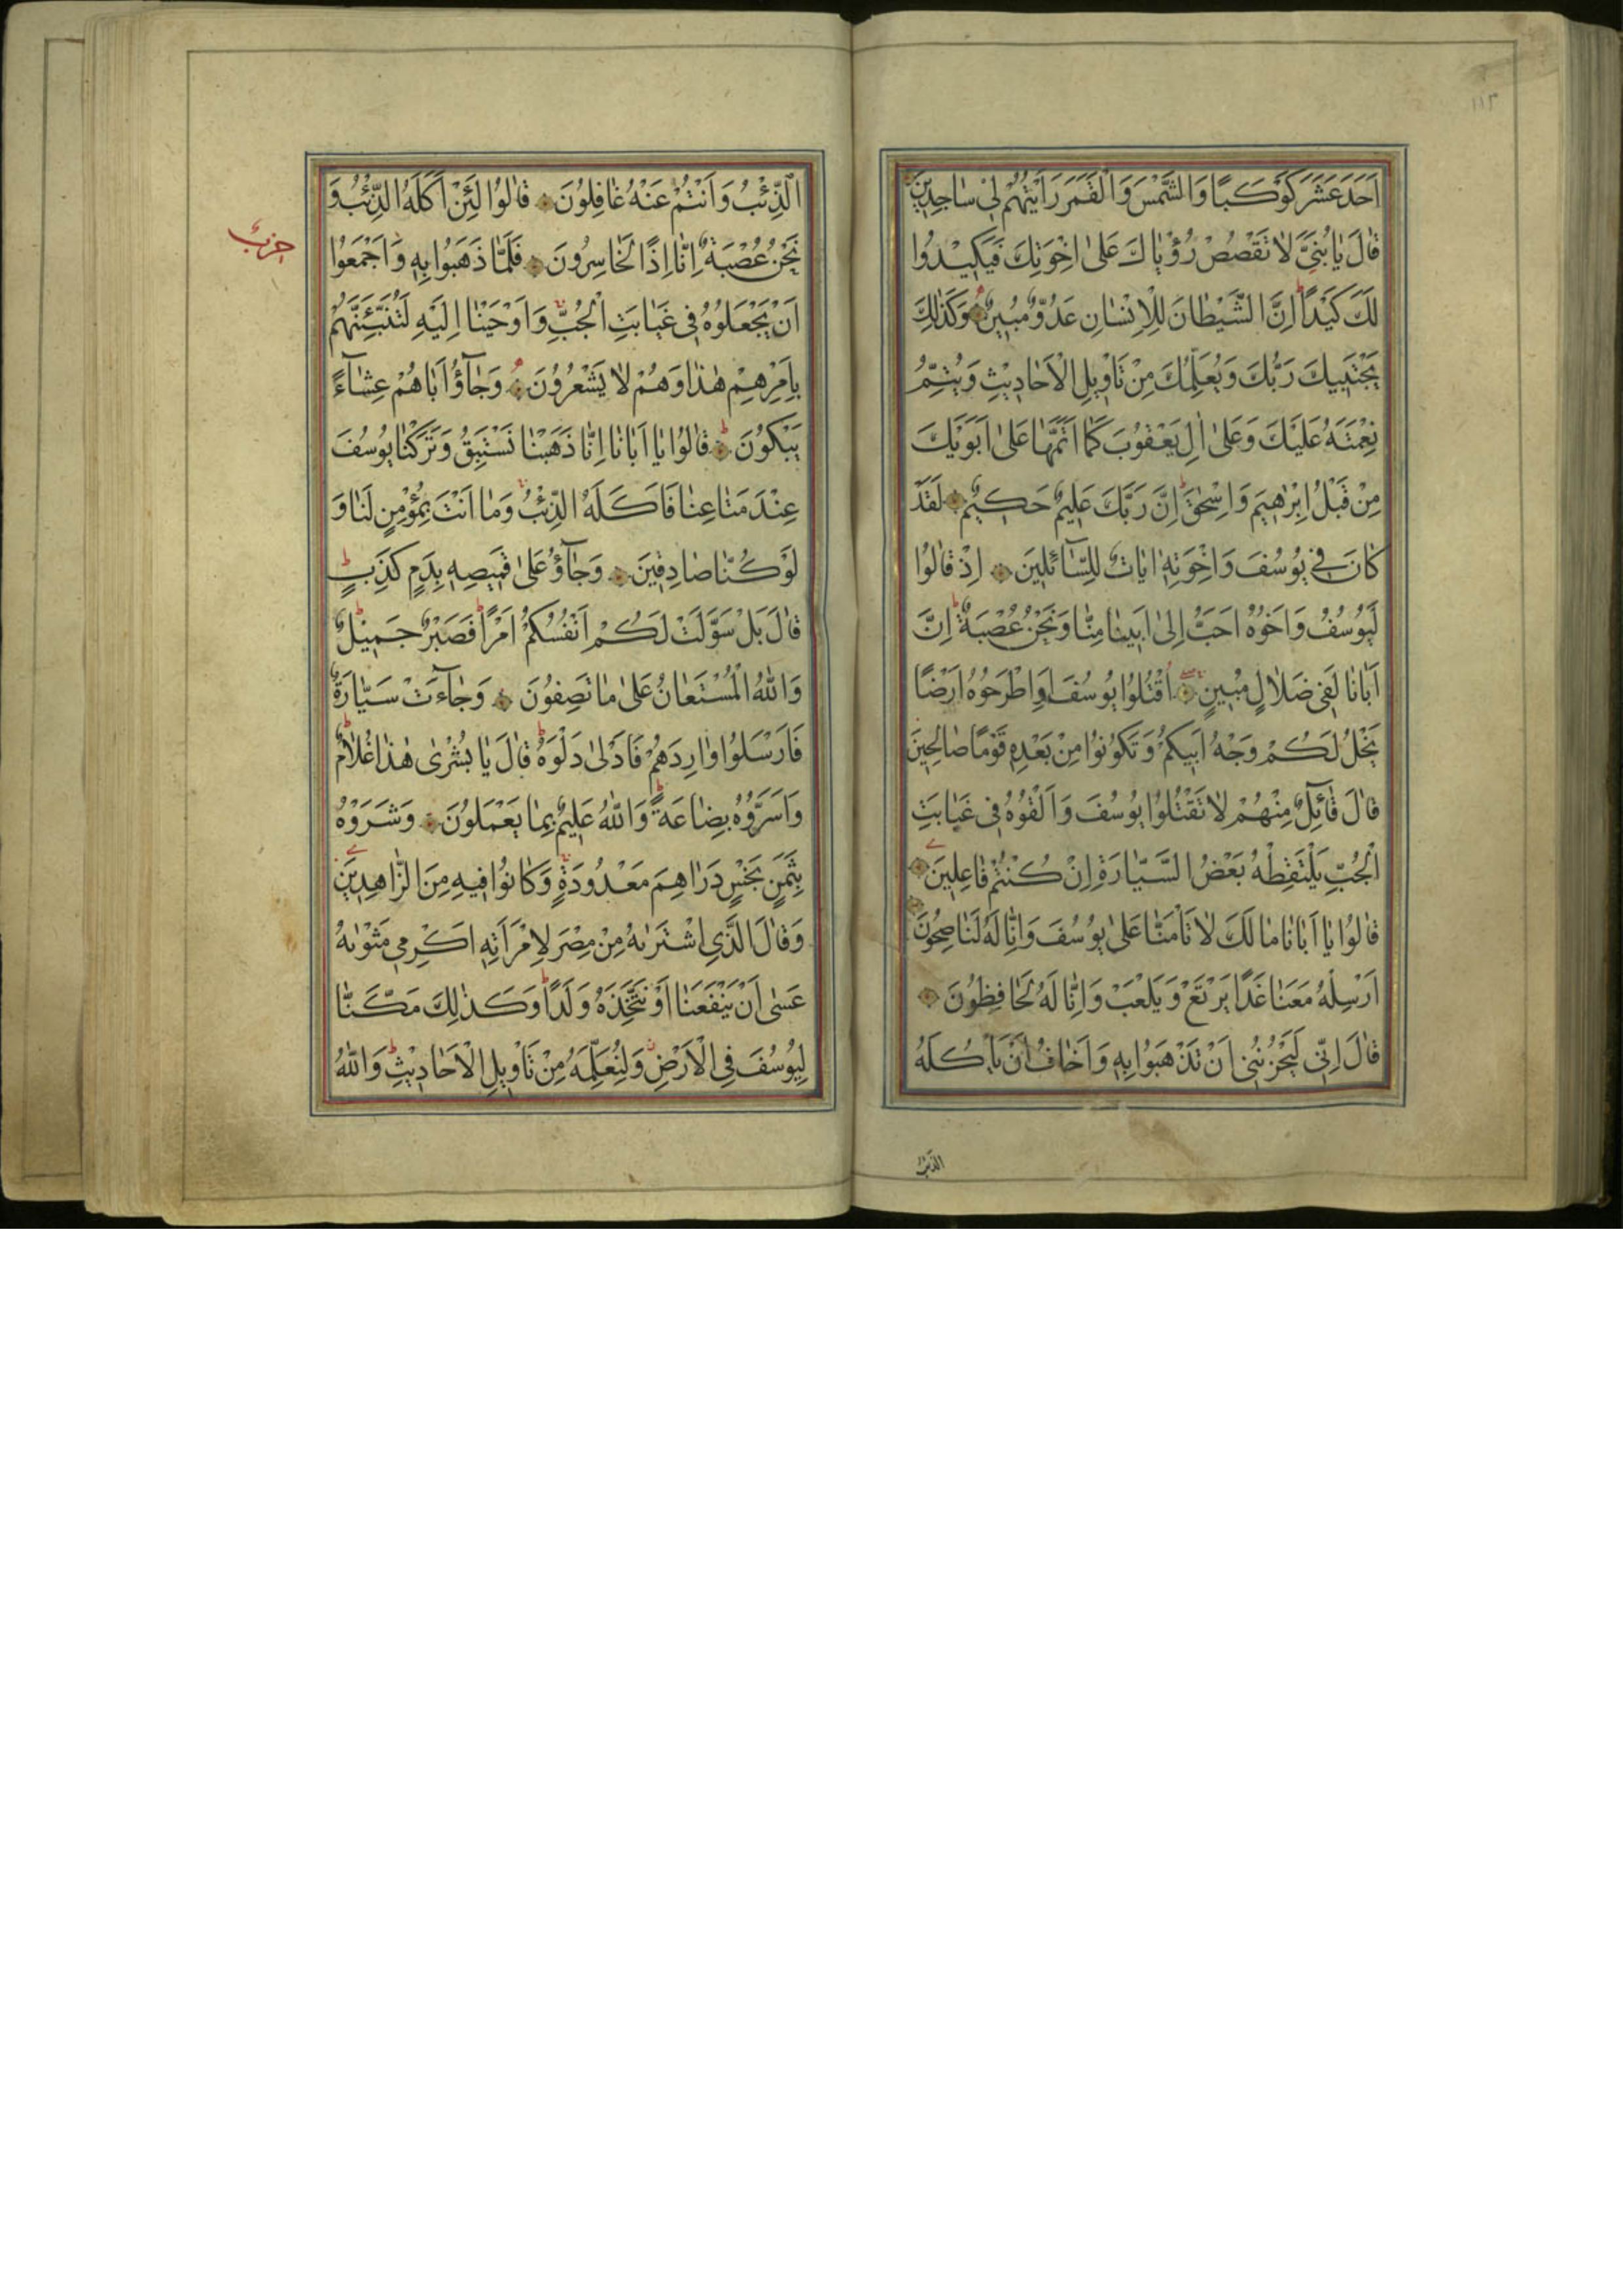 ١١٣
اَحَدَ عَشَرَ كَوْكَبًا وَالشَّمْسَ وَالْقَمَرَ رَاَيْتُهُمْ لِي سَاجِدِينَ
قَالَ يَا بُنَيَّ لَا تَقْصُصْ رُؤْيَاكَ عَلٰى اِخْوَتِكَ فَيَكِيدُوا
لَكَ كَيْدًا اِنَّ الشَّيْطَانَ لِلْاِنْسَانِ عَدُوٌّ مُبِينٌ وَكَذٰلِكَ
يَجْتَبِيكَ رَبُّكَ وَيُعَلِّمُكَ مِنْ تَاْوِيلِ الْاَحَادِيثِ وَيُتِمُّ
نِعْمَتَهُ عَلَيْكَ وَعَلٰى اٰلِ يَعْقُوبَ كَمَا اَتَمَّهَا عَلٰى اَبَوَيْكَ
مِنْ قَبْلُ اِبْرٰهِيمَ وَاِسْحٰقَ اِنَّ رَبَّكَ عَلِيمٌ حَكِيمٌ لَقَدْ
كَانَ فِي يُوسُفَ وَاِخْوَتِهِ اٰيَاتٌ لِلسَّآئِلِينَ اِذْ قَالُوا
لَيُوسُفُ وَاَخُوهُ اَحَبُّ اِلٰى اَبِينَا مِنَّا وَنَحْنُ عُصْبَةٌ اِنَّ
اَبَانَا لَفِي ضَلَالٍ مُبِينٍ اُقْتُلُوا يُوسُفَ اَوِ اطْرَحُوهُ اَرْضًا
يَخْلُ لَكُمْ وَجْهُ اَبِيكُمْ وَتَكُونُوا مِنْ بَعْدِهِ قَوْمًا صَالِحِينَ
قَالَ قَآئِلٌ مِنْهُمْ لَا تَقْتُلُوا يُوسُفَ وَاَلْقُوهُ فِي غَيَابَتِ
الْجُبِّ يَلْتَقِطْهُ بَعْضُ السَّيَّارَةِ اِنْ كُنْتُمْ فَاعِلِينَ
قَالُوا يَا اَبَانَا مَا لَكَ لَا تَاْمَنَّا عَلٰى يُوسُفَ وَاِنَّا لَهُ لَنَاصِحُونَ
اَرْسِلْهُ مَعَنَا غَدًا يَرْتَعْ وَيَلْعَبْ وَاِنَّا لَهُ لَحَافِظُونَ
قَالَ اِنِّي لَيَحْزُنُنِي اَنْ تَذْهَبُوا بِهِ وَاَخَافُ اَنْ يَاْكُلَهُ
الذئب
اَلذِّئْبُ وَاَنْتُمْ عَنْهُ غَافِلُونَ قَالُوا لَئِنْ اَكَلَهُ الذِّئْبُ وَ
نَحْنُ عُصْبَةٌ اِنَّا اِذًا لَخَاسِرُونَ فَلَمَّا ذَهَبُوا بِهِ وَاَجْمَعُوا
حزب
اَنْ يَجْعَلُوهُ فِي غَيَابَتِ الْجُبِّ وَاَوْحَيْنَا اِلَيْهِ لَتُنَبِّئَنَّهُمْ
بِاَمْرِهِمْ هٰذَا وَهُمْ لَا يَشْعُرُونَ وَجَآؤُ اَبَاهُمْ عِشَآءً
يَبْكُونَ قَالُوا يَا اَبَانَا اِنَّا ذَهَبْنَا نَسْتَبِقُ وَتَرَكْنَا يُوسُفَ
عِنْدَ مَتَاعِنَا فَاَكَلَهُ الذِّئْبُ وَمَا اَنْتَ بِمُؤْمِنٍ لَنَا وَ
لَوْ كُنَّا صَادِقِينَ وَجَآؤُ عَلٰى قَمِيصِهِ بِدَمٍ كَذِبٍ
قَالَ بَلْ سَوَّلَتْ لَكُمْ اَنْفُسُكُمْ اَمْرًا فَصَبْرٌ جَمِيلٌ
وَاللّٰهُ الْمُسْتَعَانُ عَلٰى مَا تَصِفُونَ وَجَآءَتْ سَيَّارَةٌ
فَاَرْسَلُوا وَارِدَهُمْ فَاَدْلٰى دَلْوَهُ قَالَ يَا بُشْرٰى هٰذَا غُلَامٌ
وَاَسَرُّوهُ بِضَاعَةً وَاللّٰهُ عَلِيمٌ بِمَا يَعْمَلُونَ وَشَرَوْهُ
بِثَمَنٍ بَخْسٍ دَرَاهِمَ مَعْدُودَةٍ وَكَانُوا فِيهِ مِنَ الزَّاهِدِينَ
وَقَالَ الَّذِي اشْتَرٰيهُ مِنْ مِصْرَ لِامْرَاَتِهِ اَكْرِمِي مَثْوٰيهُ
عَسٰى اَنْ يَنْفَعَنَا اَوْ نَتَّخِذَهُ وَلَدًا وَكَذٰلِكَ مَكَّنَّا
لِيُوسُفَ فِي الْاَرْضِ وَلِنُعَلِّمَهُ مِنْ تَاْوِيلِ الْاَحَادِيثِ وَاللّٰهُ